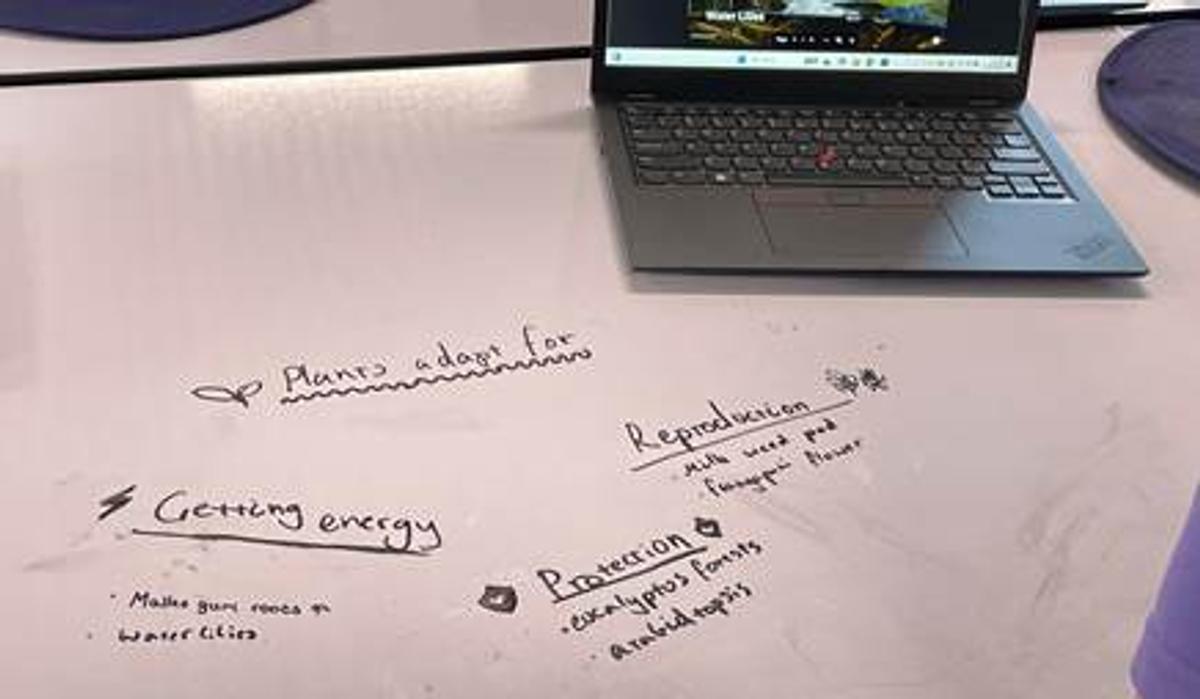 Water Lilies
Plants adapt for
Reproduction
milk weed pod
flower
Getting energy
Mallee gum roots
water lilies
Protection
eucalyptus forests
arabidtopsis